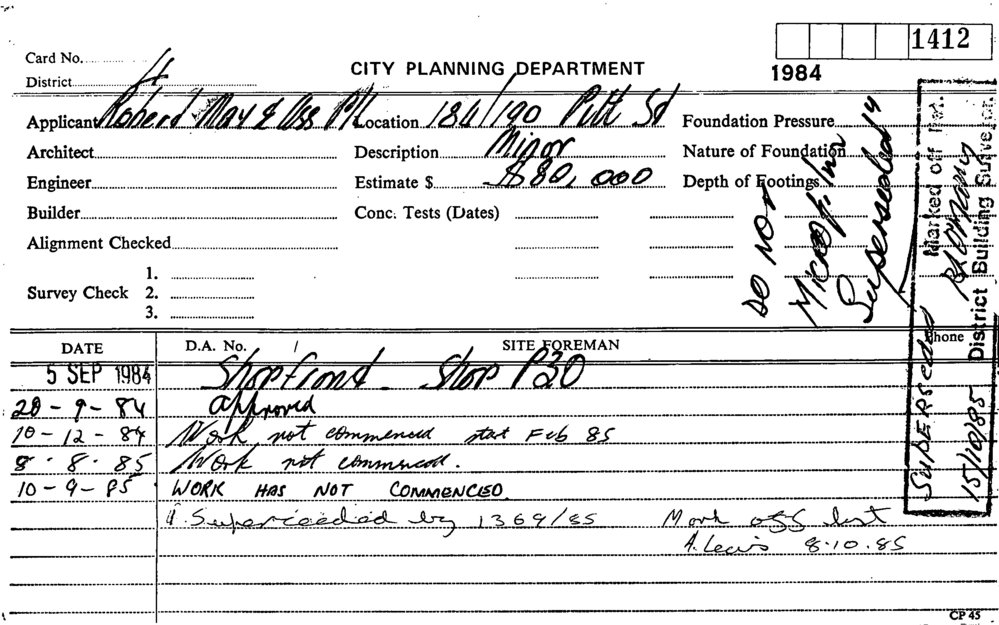 1412
Card No.
CITY PLANNING DEPARTMENT
1984
District 4
Applicant Robert Nay & Ass P/L Location 184/190 Pitt St Foundation Pressure
Architect Description Minor Nature of Foundation
Engineer Estimate $ $80,000 Depth of Footings
Builder Conc. Tests (Dates)
Alignment Checked
Survey Check 1.
2.
3.
DO NOT
Microfilm
Superseded
SUPERSEDED 15/10/85
Marked off Ref.
District Building Surveyor
Phone
DATE D.A. No. SITE FOREMAN
5 SEP 1984 Shopfront Shop P30
20-9-84 approved
10-12-84 Work not commenced start Feb 85
8-8-85 Work not commenced.
10-9-85 WORK HAS NOT COMMENCED.
Superceeded by 1369/85 Mark off list
A. Lewis 8.10.85
CP 45